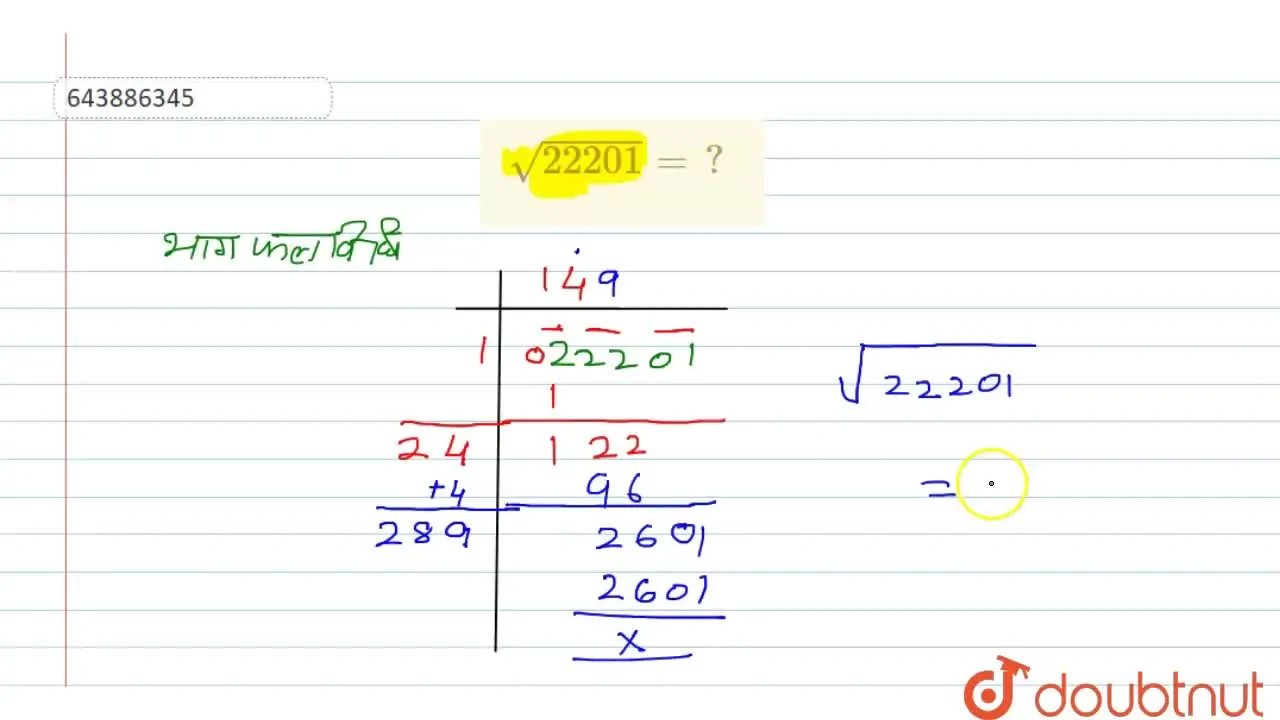 643886345
√22201 = ?
भाग फल विधि
149
1 022201
1
24 122
+4 96
289 2601
2601
x
√22201
=
doubtnut